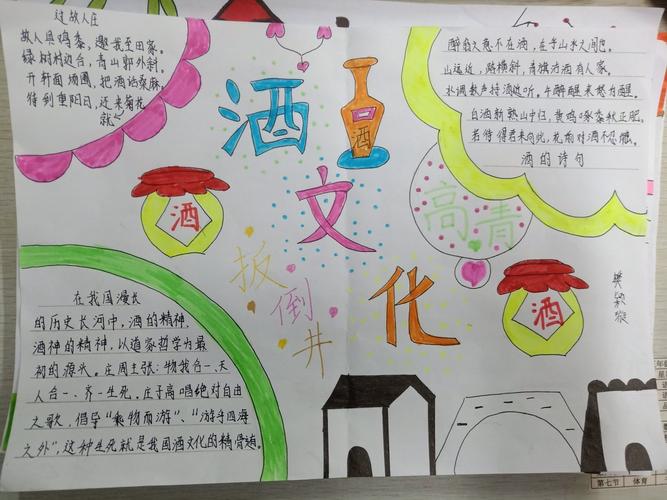 过故人庄
故人具鸡黍，邀我至田家。
绿树村边合，青山郭外斜。
开轩面场圃，把酒话桑麻。
待到重阳日，还来菊花
就
酒
文
化
酒
醉翁之意不在酒，在乎山水之间也。
山远近，路横斜，青旗沽酒有人家。
白酒新熟山中归，黄鸡啄黍秋正肥。
若待得君来向此，花前对酒不忍触。
酒的诗句
高青
酒
扳倒井
酒
在我国漫长
的历史长河中，酒的精神，
酒神的精神，以道家哲学为最
初的源头。庄周主张：物我合一，天
人合一、齐一生死。庄子高唱绝对自由
之歌，倡导“乘物而游”、“游乎四海
之外”，这种生死就是我国酒文化的精骨髓。
第七节 体育